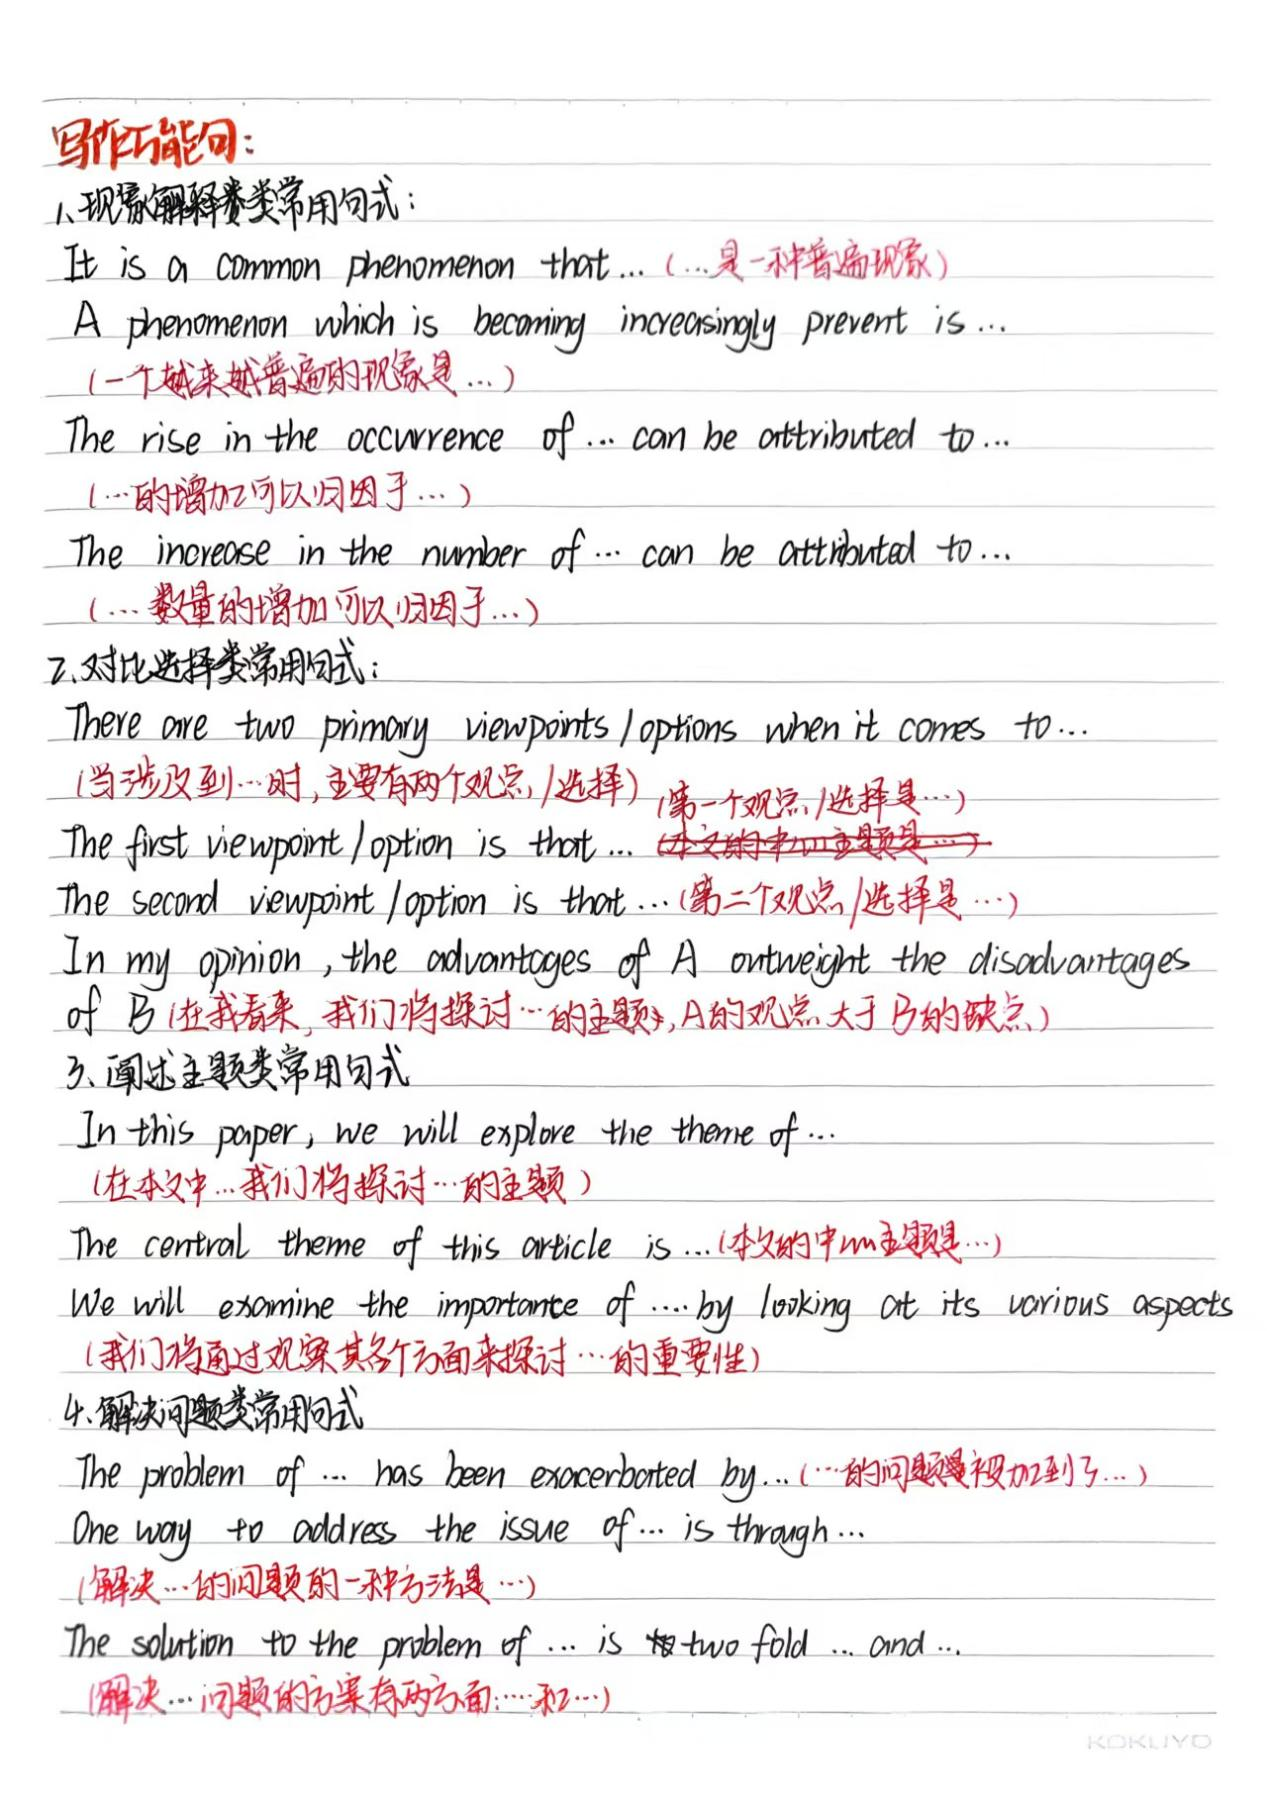 写作功能句:
1、现象解释类常用句式:
It is a common phenomenon that... (...是一种普遍现象)
A phenomenon which is becoming increasingly prevent is...
(一个越来越普遍的现象是...)
The rise in the occurrence of ... can be attributed to...
(...的增加可以归因于...)
The increase in the number of ... can be attributed to...
(...数量的增加可以归因于...)
2、对比选择类常用句式:
There are two primary viewpoints/options when it comes to...
(当涉及到...时,主要有两个观点/选择)
(第一个观点/选择是...)
The first viewpoint/option is that ... (本文的中心主题是...)
The second viewpoint/option is that...(第二个观点/选择是...)
In my opinion, the advantages of A outweight the disadvantages
of B (在我看来,我们将探讨...的主题,A的观点大于B的缺点)
3、阐述主题类常用句式
In this paper, we will explore the theme of...
(在本文中...我们将探讨...的主题)
The central theme of this article is...(本文的中心主题是...)
We will examine the importance of ....by looking at its various aspects
(我们将通过观察其各个方面来探讨...的重要性)
4、解决问题类常用句式
The problem of ... has been exacerbated by...(...的问题被加剧了...)
One way to address the issue of... is through...
(解决...的问题的一种方法是...)
The solution to the problem of ... is two fold ... and ...
(解决...问题的方案有两方面:...和...)
KOKUYO